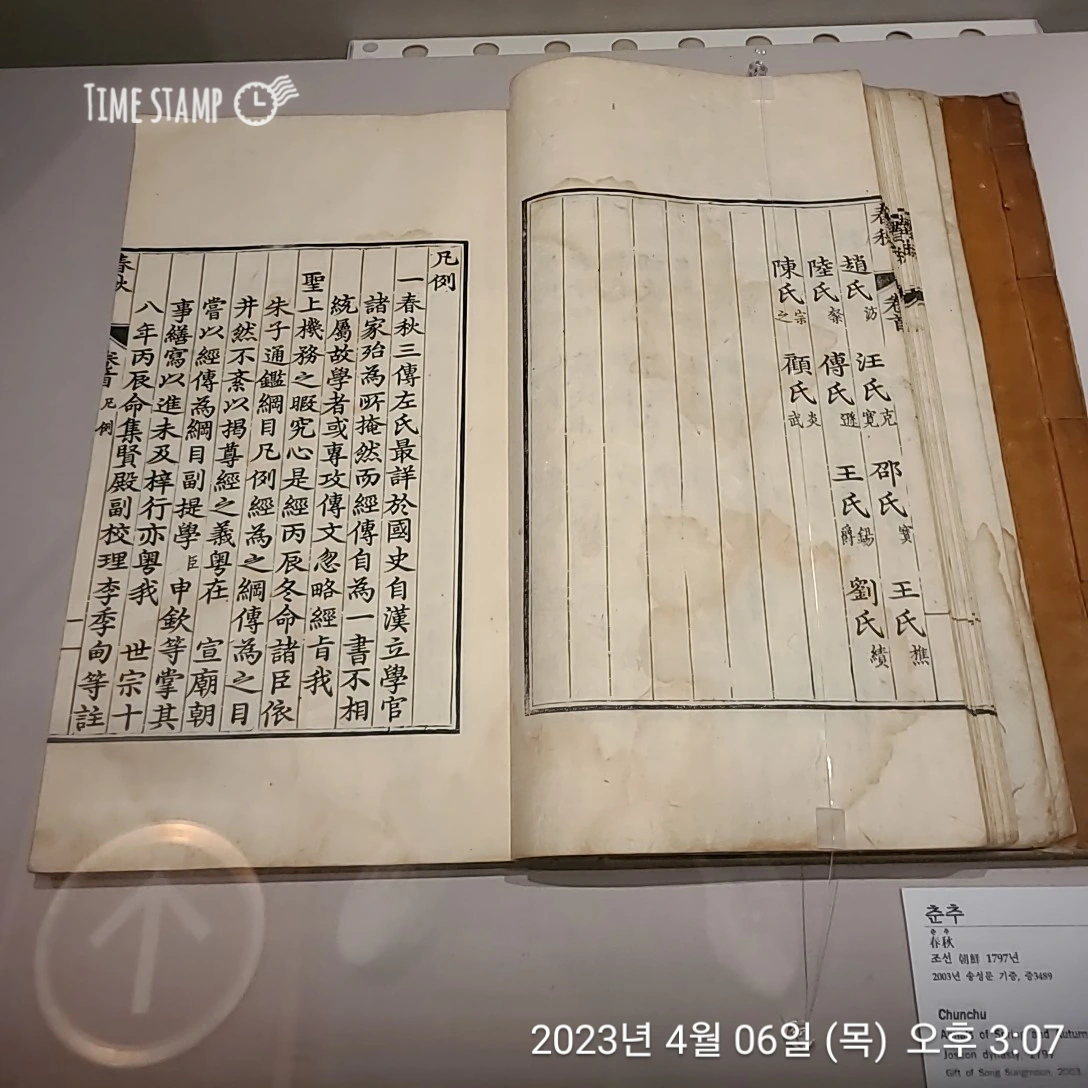 TIME STAMP
春秋
卷首
趙氏汸
汪氏克寬
邵氏寶
王氏樵
陸氏粲
傳氏遜
王氏錫爵
劉氏績
陳氏宗之
顧氏炎武
凡例
一春秋三傳左氏最詳於國史自漢立學官
諸家殆為所掩然而經傳自為一書不相
統屬故學者或專攻傳文忽略經旨我
聖上機務之暇究心是經丙辰冬命諸臣依
朱子通鑑綱目凡例經為之綱傳為之目
井然不紊以揭尊經之義粵在 宣廟朝
嘗以經傳為綱目副提學臣申欽等掌其
事繕寫以進未及梓行亦粵我 世宗十
八年丙辰命集賢殿副校理李季甸等註
春秋
卷首 凡例
一
춘추
춘추
春秋
조선 朝鮮 1797년
2003년 송성문 기증, 증3489
Chunchu
Annals of Spring and Autumn
Joseon dynasty, 1797
Gift of Song Sungmoon, 2003
2023년 4월 06일 (목) 오후 3.07